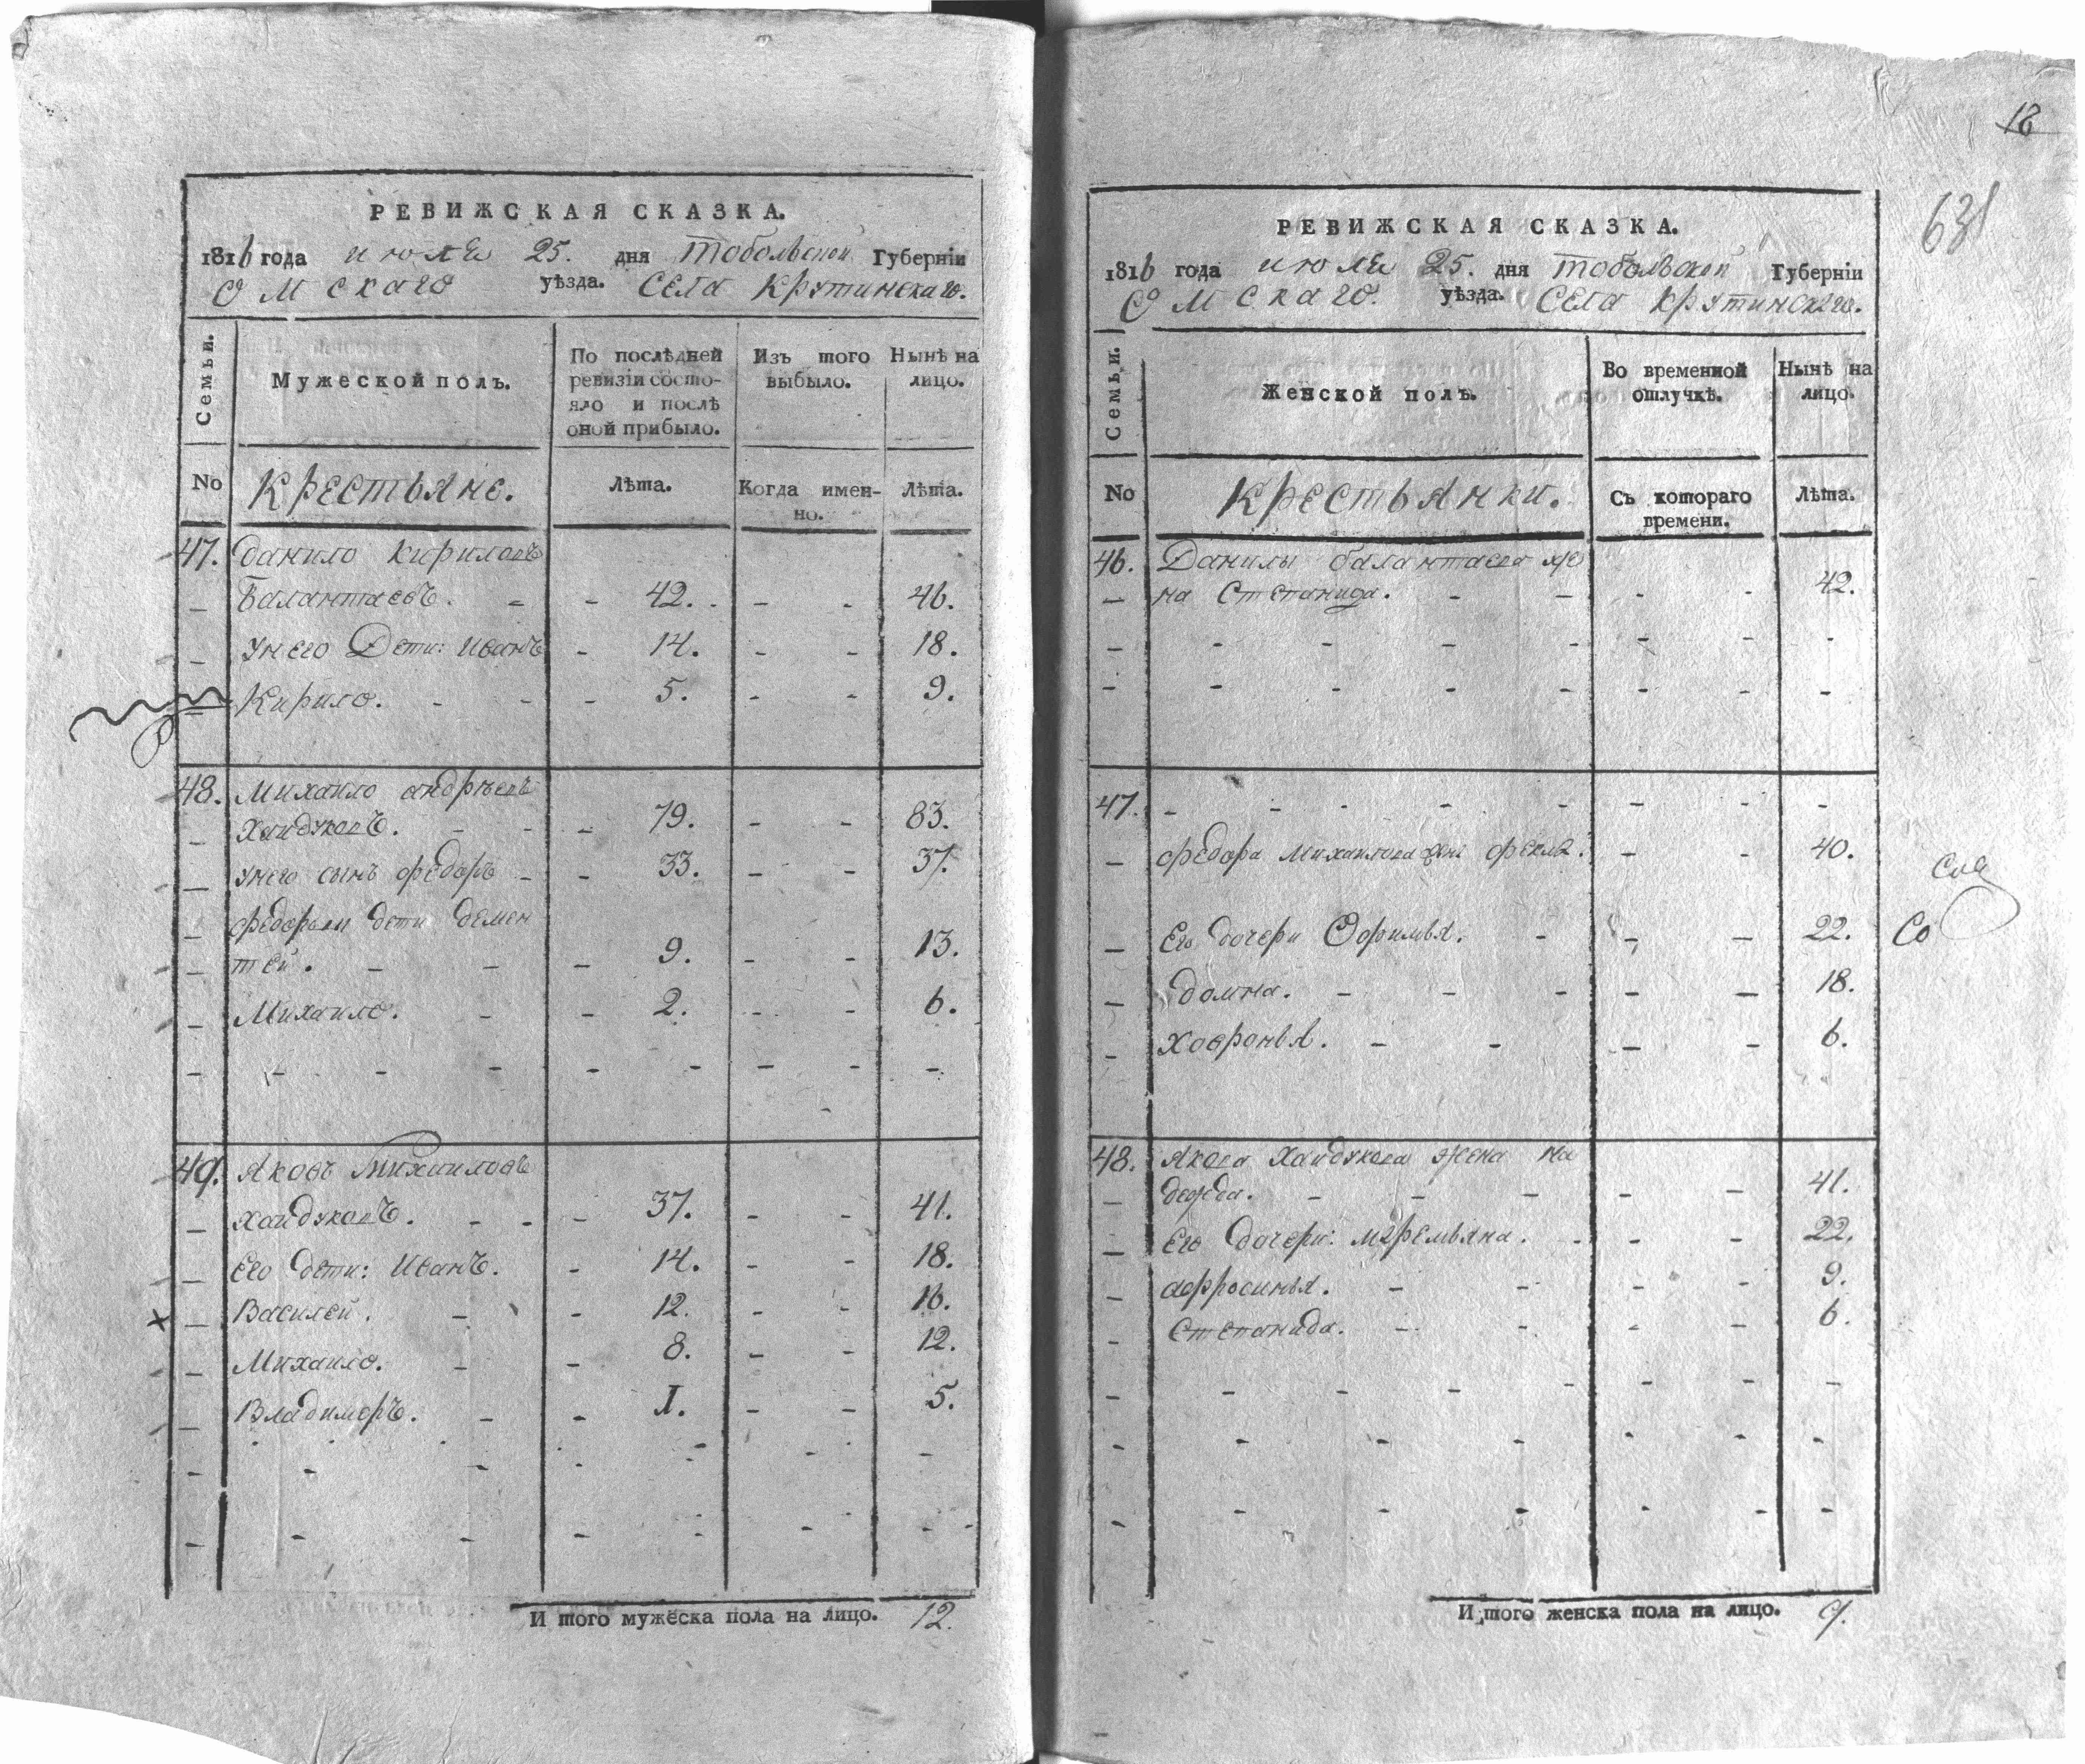 РЕВИЖСКАЯ СКАЗКА.
1816 года июля 25. дня Тобольской Губерніи
Омскаго уѣзда. Села Крутинскаго.
Семьи.
Мужеской полъ.
По послѣдней ревизіи состо-
яло и послѣ
оной прибыло.
Изъ того выбыло.
Нынѣ на лицо.
No
Крестьяне.
Лѣта.
Когда имен-
но.
Лѣта.
47. Данило Кириловъ
Балантаевъ. 42. 46.
У него Дети: Иванъ 14. 18.
Кирило. 5. 9.
48. Михайло андрѣевъ
Хайдуковъ. 79. 83.
У него сынъ федоръ 33. 37.
федоровы дети демен
тей. 9. 13.
Михайло. 2. 6.
49. Яковъ Михайловъ
Хайдуковъ. 37. 41.
Его дети: Иванъ. 14. 18.
Василей. 12. 16.
Михайло. 8. 12.
Владимеръ. I. 5.
И того мужеска пола на лицо. 12.
18
631
РЕВИЖСКАЯ СКАЗКА.
1816 года июля 25. дня Тобольской Губерніи
Омскаго. уѣзда. Села Крутинскаго.
Семьи.
Женской полъ.
Во временной
отлучкѣ.
Нынѣ на
лицо.
No
Крестьянки.
Съ котораго
времени.
Лѣта.
46. Данилы балантаева же
на Степанида. 42.
47.
федора Михайлова жена фекла. 40.
Его дочери Офимья. 22. Со
домна. 18.
Хавронья. 6.
48. Якова Хайдукова жена На
дежда. 41.
Его дочери: мѣремьяна. 22.
афросинья. 9.
Степанида. 6.
И того женска пола на лицо. 9.